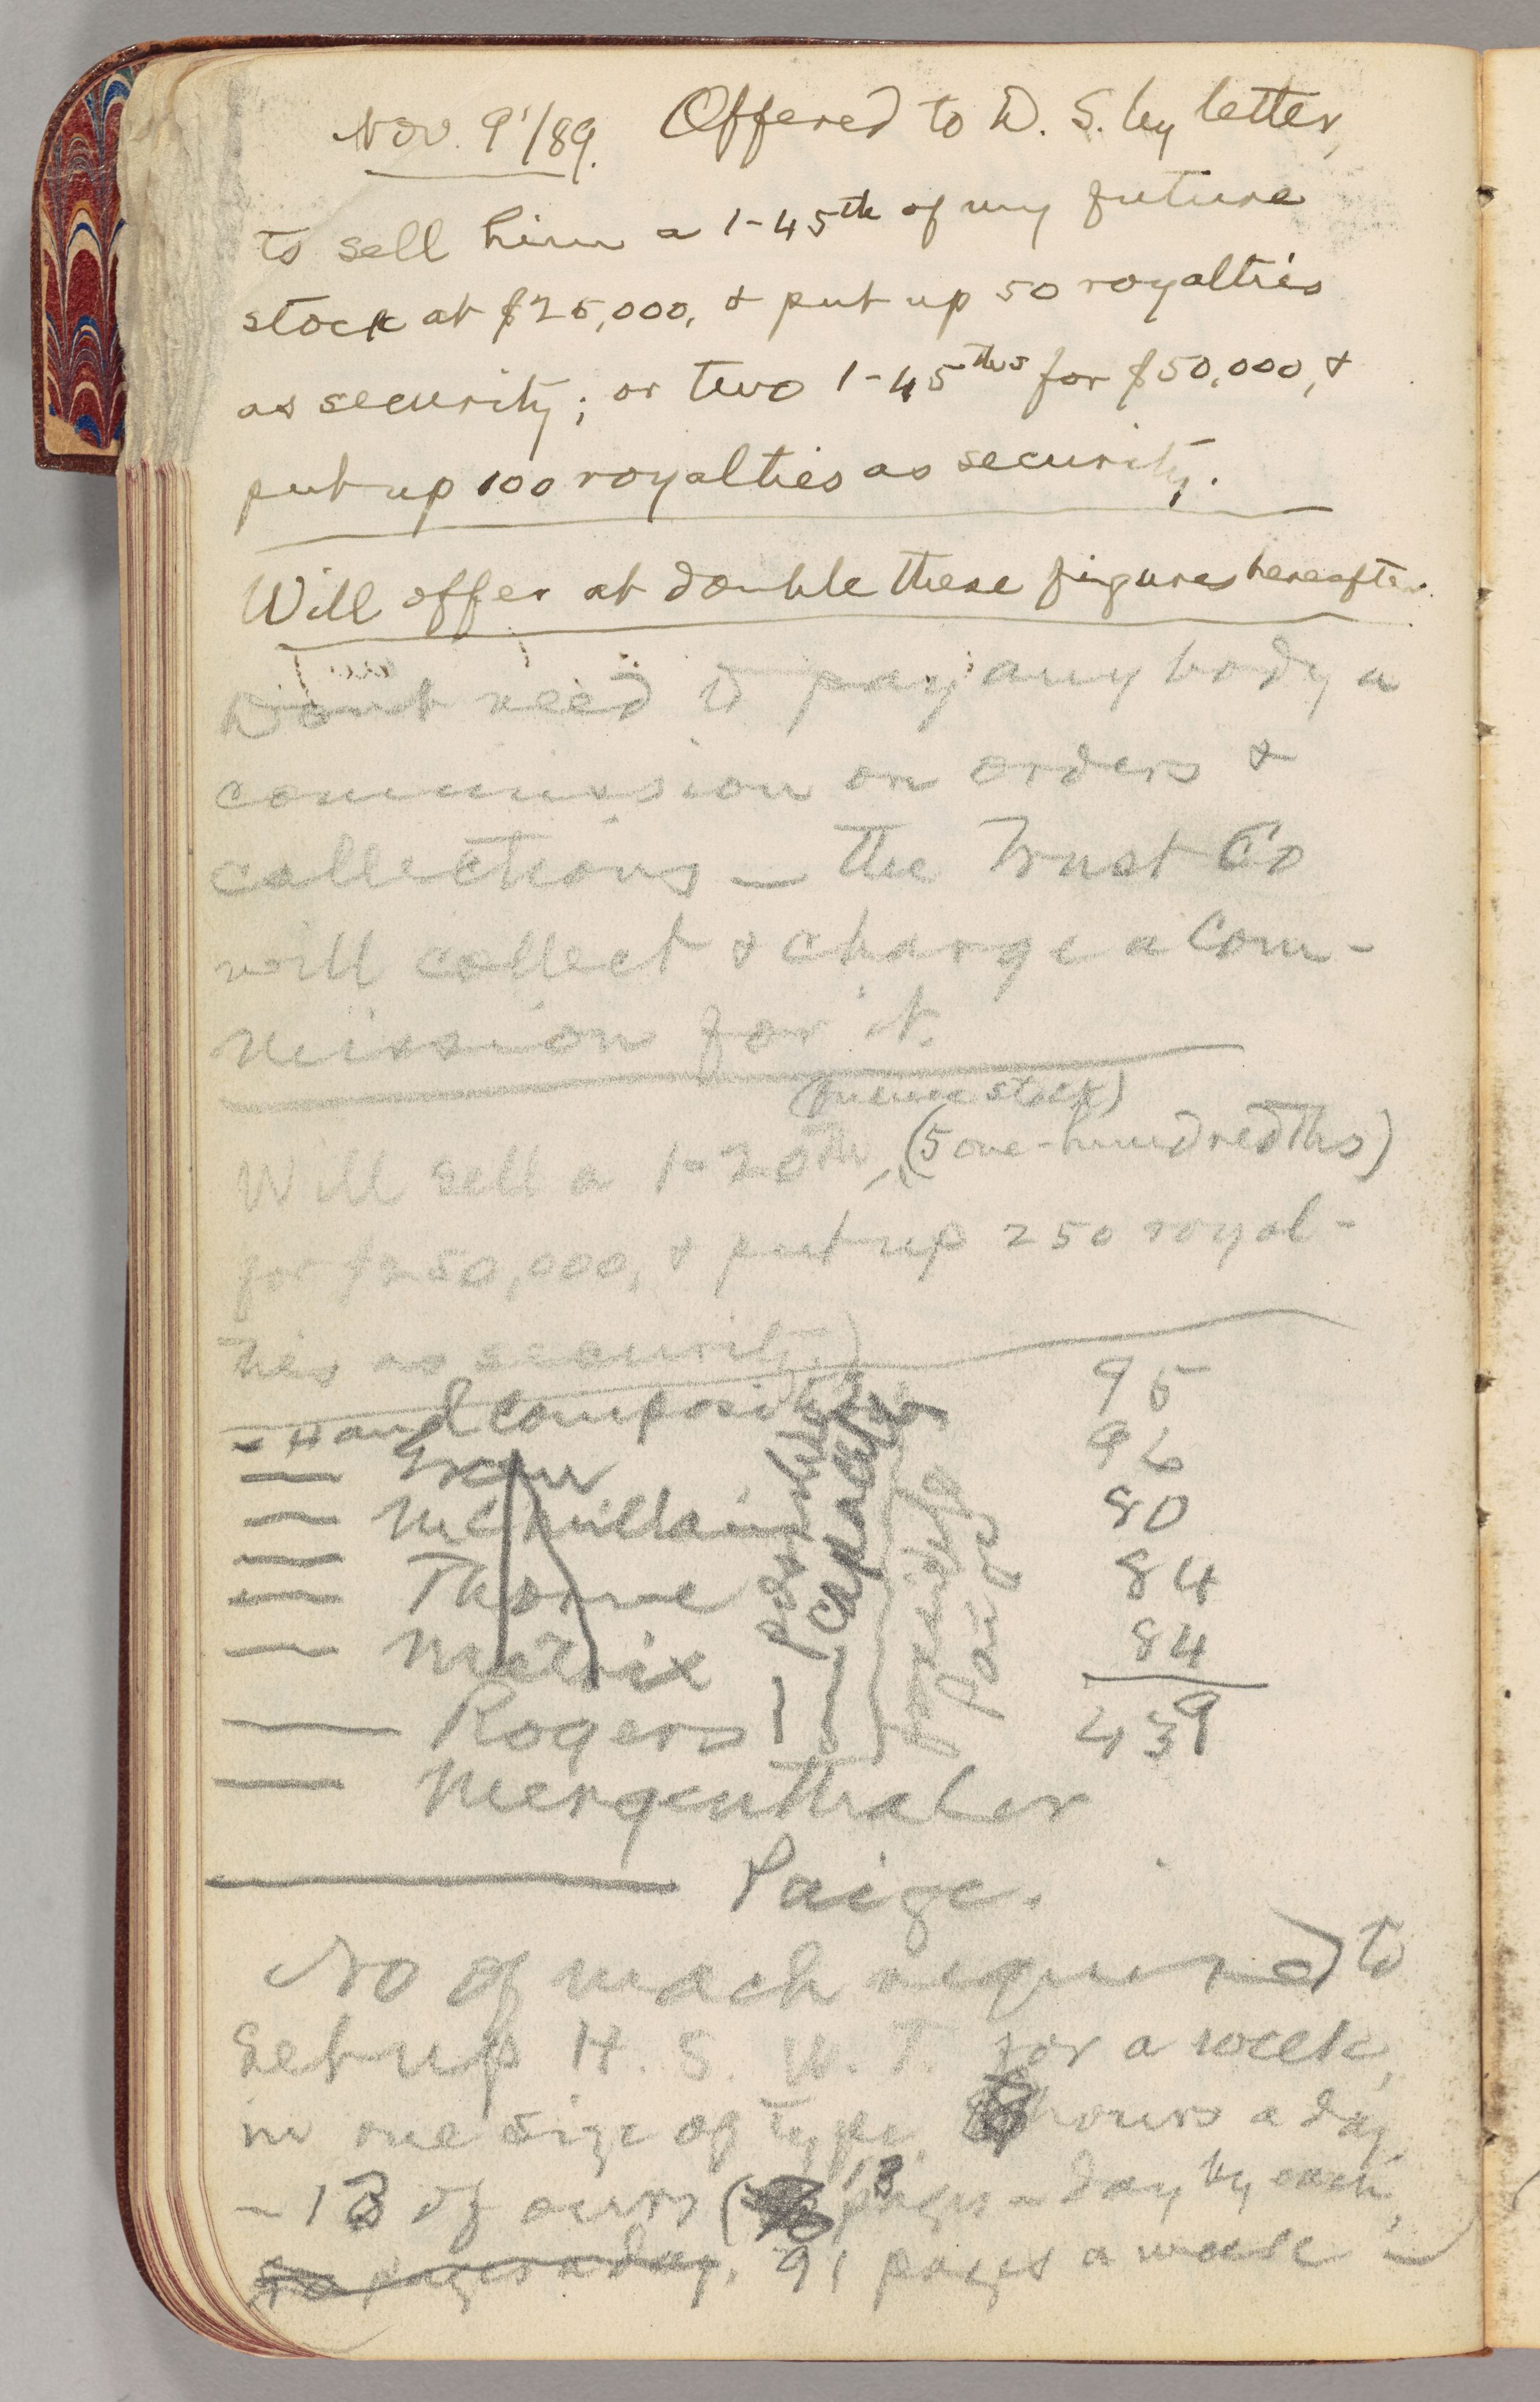 Nov. 9/89. Offered to D. S. by letter,
to sell him a 1-45th of my future
stock at $25,000, & put up 50 royalties
as security; or two 1-45ths for $50,000, &
put up 100 royalties as security.
Will offer at double these figures hereafter.
Don't need to pay any body a
commission on orders &
collections — the Trust Co
will collect & charge a com-
mission for it.
(future stock)
Will sell a 1-20th, (5 one-hundredths)
for $250,000, & put up 250 royal-
ties as security.)
— Hand composit
—
— McMillain
— Thorne
— Matrix
— Rogers
— Mergenthaler
— Paige.
capacity
Paige
95
96
80
84
84
439
No of mach required to
set up H. S. W. T. for a week,
in one size of type, hours a day
— 13 of ours ( 13 pages a day by each,
pages a day, 91 pages a week —